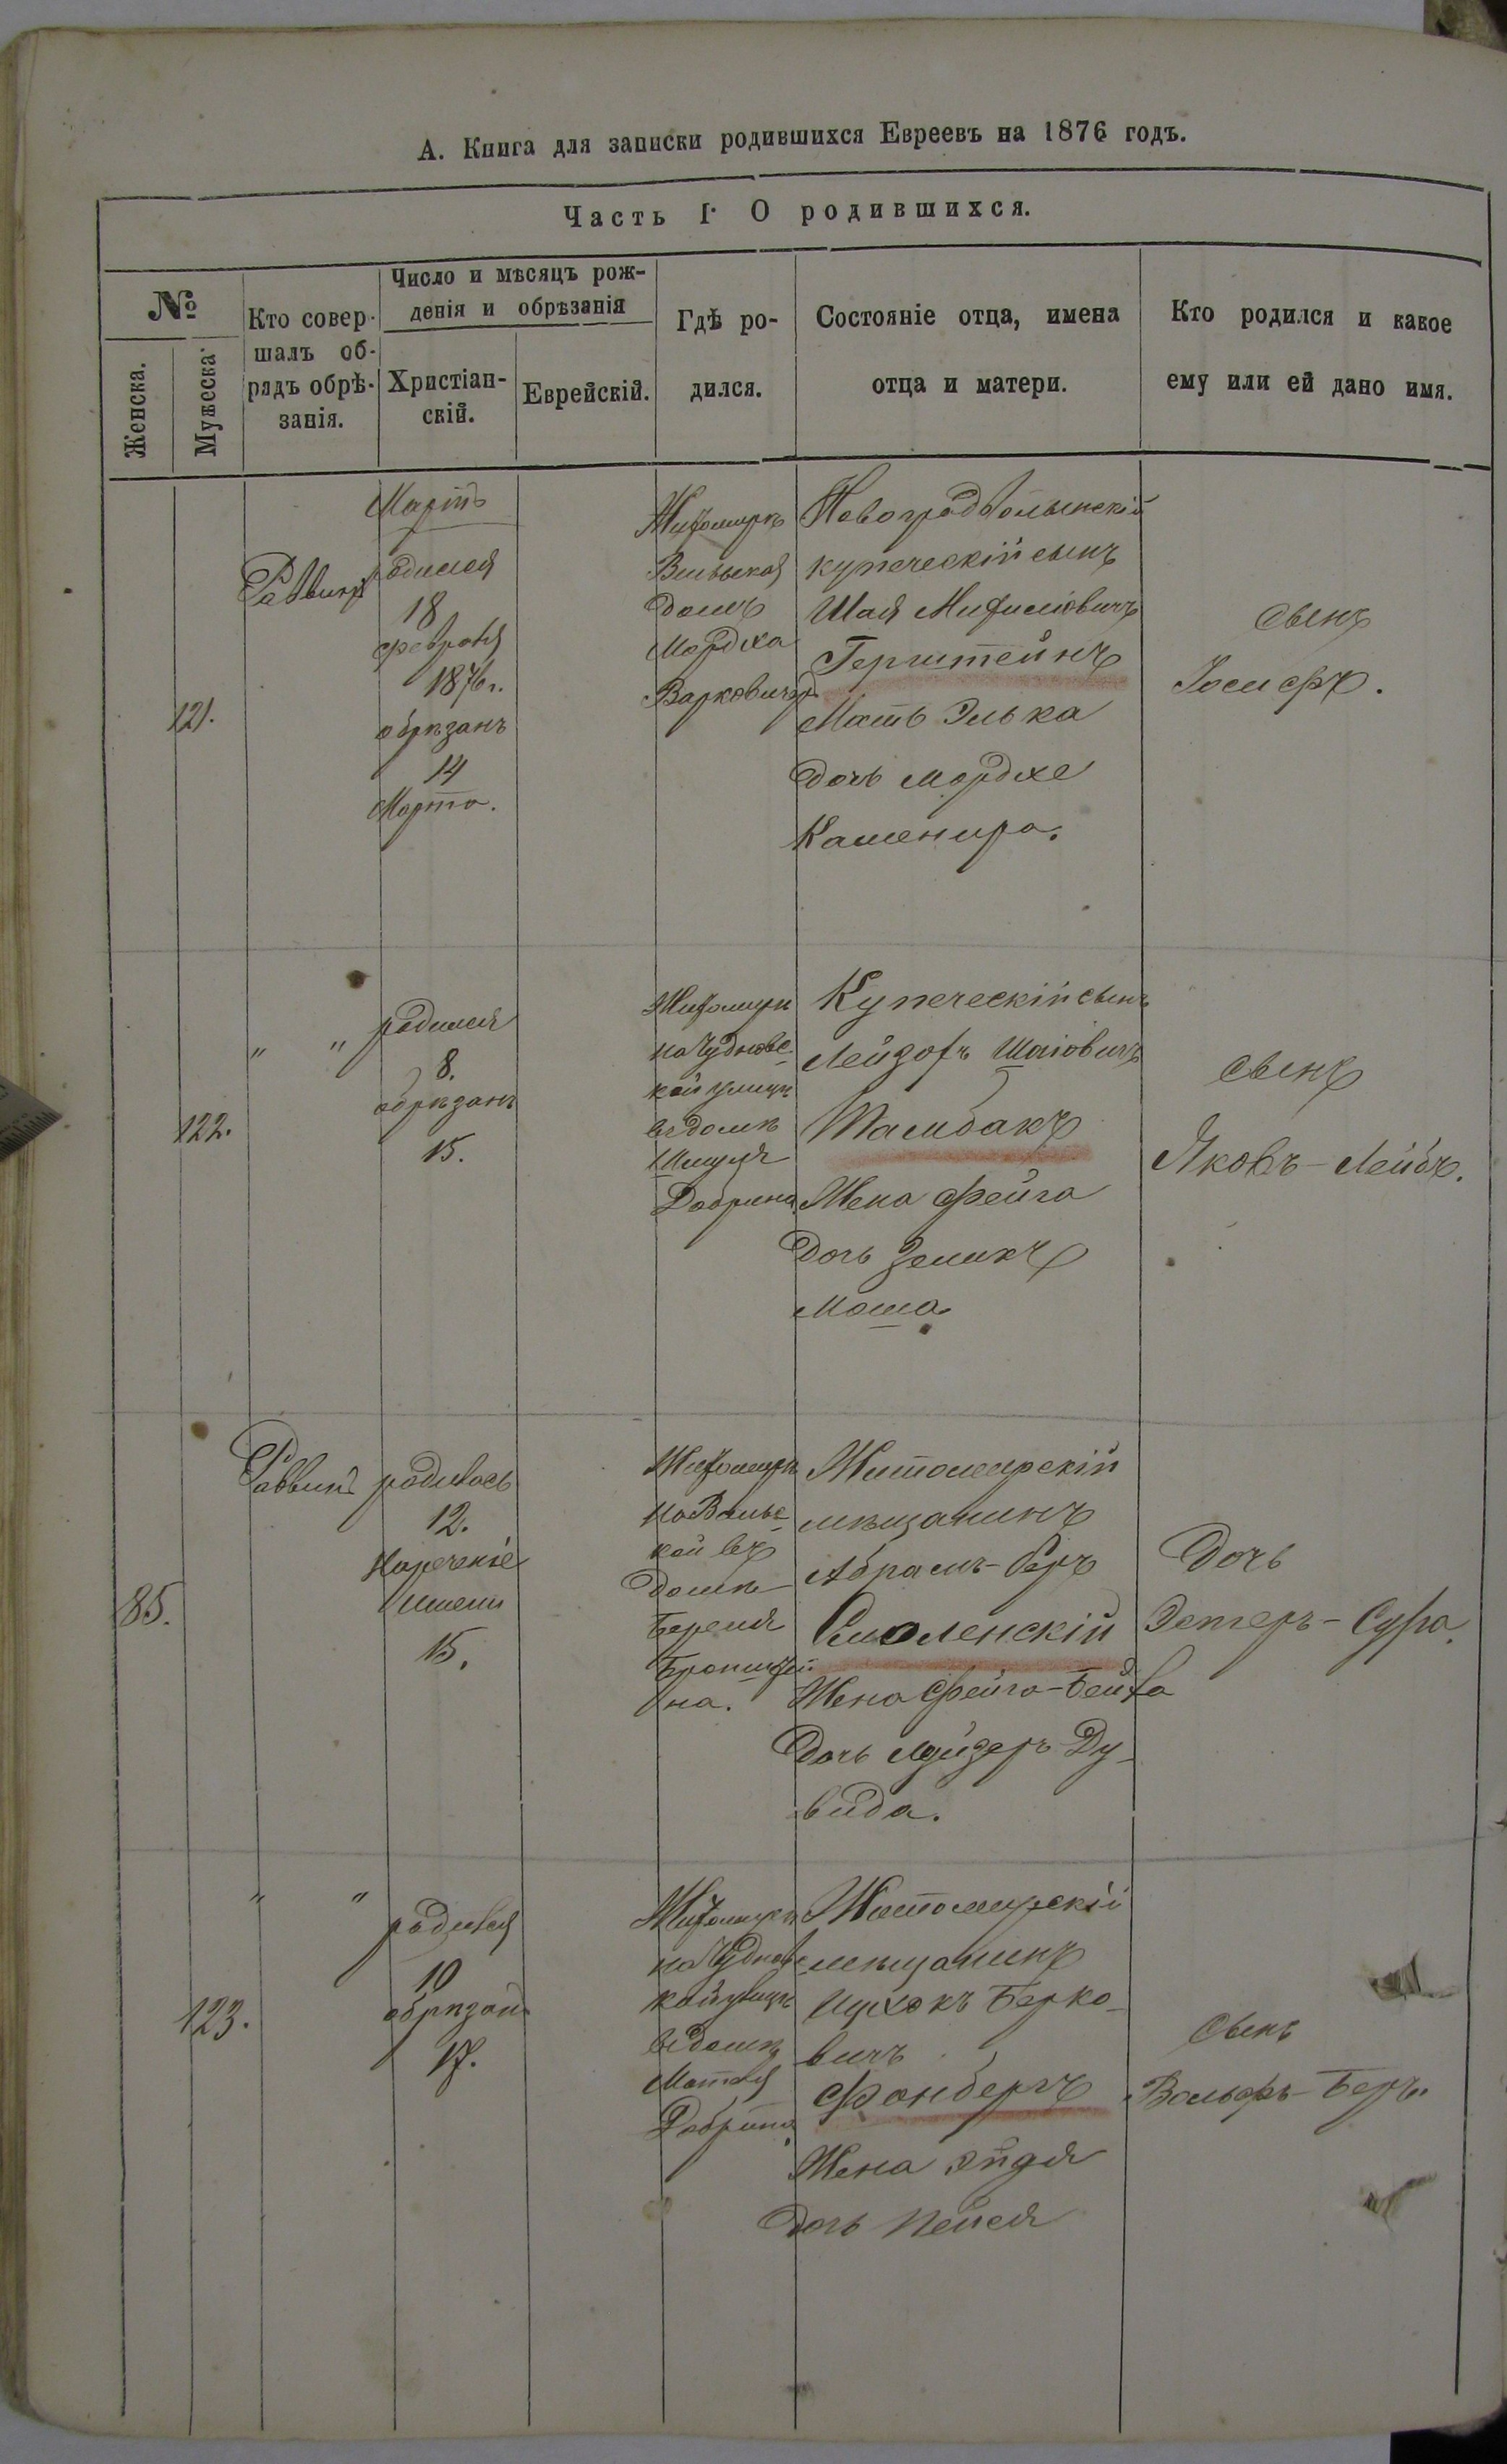 А. Книга для записки родившихся Евреевъ на 1876 годъ.
Часть I. О родившихся.
№
Женска.
Мужеска.
Кто совер-
шалъ об-
рядъ обрѣ-
занія.
Число и мѣсяцъ рож-
денія и обрѣзанія
Христіан-
скій.
Еврейскій.
Гдѣ ро-
дился.
Состояніе отца, имена
отца и матери.
Кто родился и какое
ему или ей дано имя.
121.
Раввинъ
Мартъ
родился
18
февраля
1876 г.
обрѣзанъ
14
Марта.
Житомирѣ
Вильская
домъ
Мордха
Новоградволынскій
купеческій сынъ
Шая
Герштейнъ
Мать Элька
дочь Мордхе
Кашенира.
сынъ
Іосифъ.
122.
" "
родился
8.
обрѣзанъ
15.
Житомирѣ
на Чудновс-
кой улицѣ
въ домѣ
Добрина
Купеческій сынъ
Лейзоръ Шаіовичъ
Тамбакъ
Жена Фейга
дочь Зеликъ
Моша
сынъ
Яковъ-Лейбъ.
85.
Раввинъ
родилась
12.
Нареченіе
имени
15.
Житомирѣ
на Вильс-
кой въ
домѣ
Береля
Бронштей
на.
Житомирскій
мѣщанинъ
Абрамъ-Беръ
Смоленскій
Жена Фейга-Бейла
дочь Лейзеръ Ду-
вида.
Дочь
Эстеръ-Сура.
123.
" "
родился
10
обрѣзанъ
17.
Житомирѣ
на Чудновс
кой улицѣ
въ домѣ
Мотеля
Добрина
Житомирскій
мѣщанинъ
Ицхокъ Берко-
вичъ
Фонбергъ
Жена Эйдя
дочь Пейся
сынъ
Вольфъ-Беръ.